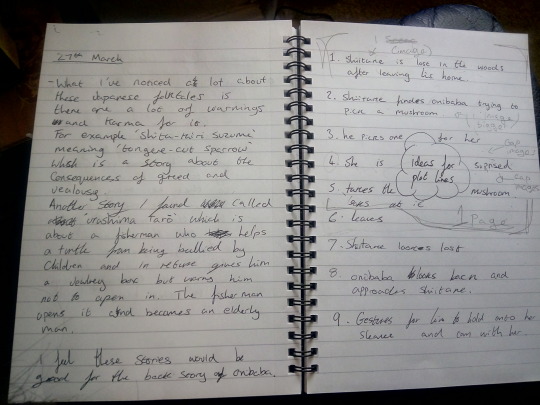 27th March
- What I've noticed a lot about
these Japanese folktales is
there are a lot of warnings
and Karma for it.
For example 'Shita-Kiri Suzume'
meaning 'tongue-cut sparrow'
Which is a story about the
Consequences of greed and
Jealousy.
Another Story I found called
'urashima Taro' which is
about a fisherman who helps
a turtle from being bullied by
Children and in returne gives him
a Jewlrey box but warns him
not to open in. The fisherman
opens it and becomes an elderly
man.
I feel these stories would be
good for the back story of onibaba.
1. Shiitane is lose in the woods
after leaving his home.
2. Shiitane findes onibaba trying to
pick a mushroom
3. he picks one for her
4. She is suprised
5. takes the mushroom
looks at it
6. leaves
Ideas for
plot lines
1 Page
7. Shitane lookes lost
8. onibaba looks back and
approachs shiitane.
9. Gestures for him to hold onto her
sleave and com with her